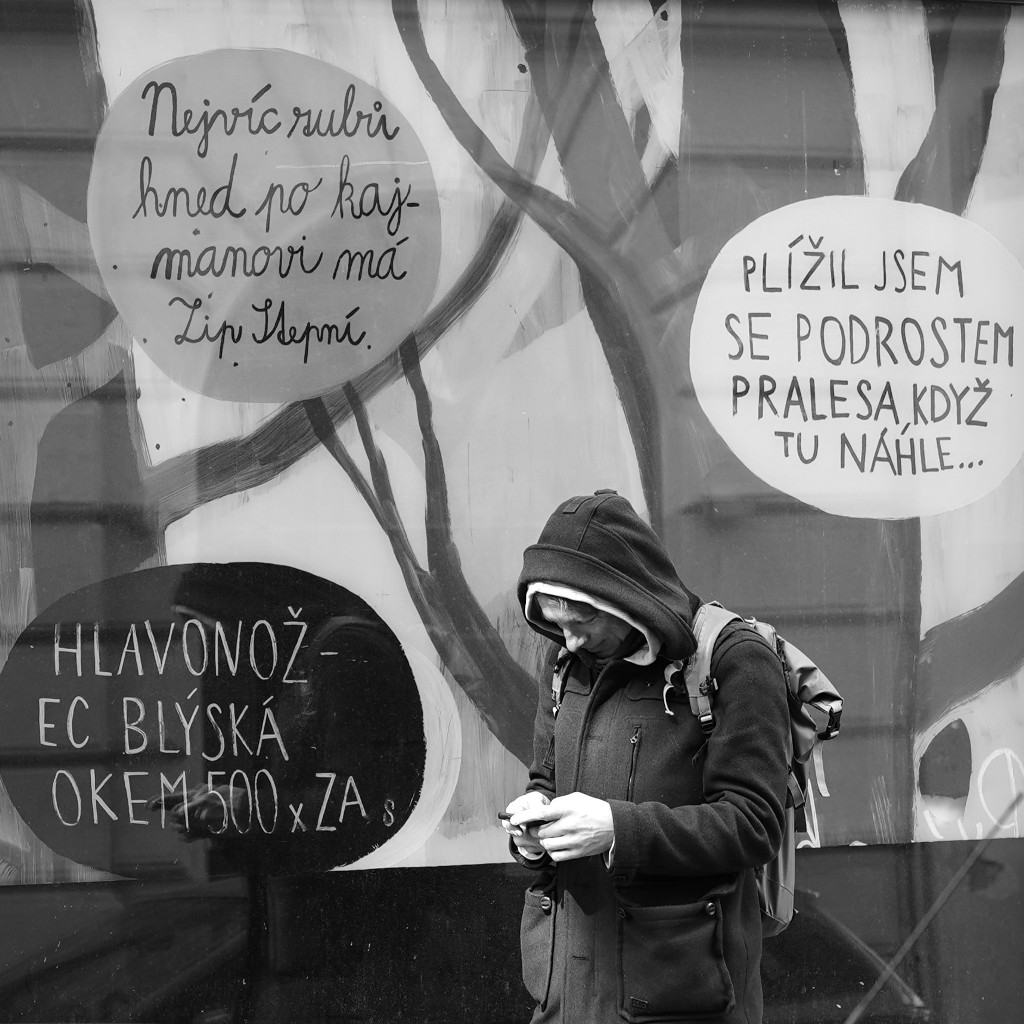 Nejvíc zubů
hned po kaj-
manovi má
Zip Stepní.
PLÍŽIL JSEM
SE PODROSTEM
PRALESA, KDYŽ
TU NÁHLE...
HLAVONOŽ-
EC BLÝSKÁ
OKEM 500 x ZA s